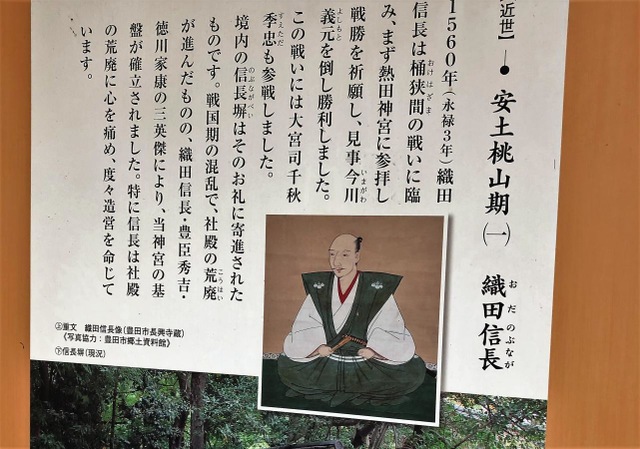 【近世】
安土桃山期㈠ 織田信長
おだのぶなが
1560年(永禄3年)織田
信長は桶狭間の戦いに臨
おけはざま
み、まず熱田神宮に参拝し
戦勝を祈願し、見事今川
いまがわ
義元を倒し勝利しました。
よしもと
この戦いには大宮司千秋
季忠も参戦しました。
すえただ
境内の信長塀はそのお礼に寄進された
のぶながべい
ものです。戦国期の混乱で、社殿の荒廃
こうはい
が進んだものの、織田信長・豊臣秀吉・
徳川家康の三英傑により、当神宮の基
盤が確立されました。特に信長は社殿
の荒廃に心を痛め、度々造営を命じて
います。
㊤重文 織田信長像(豊田市長興寺蔵)
《写真協力:豊田市郷土資料館》
㊦信長塀(現況)